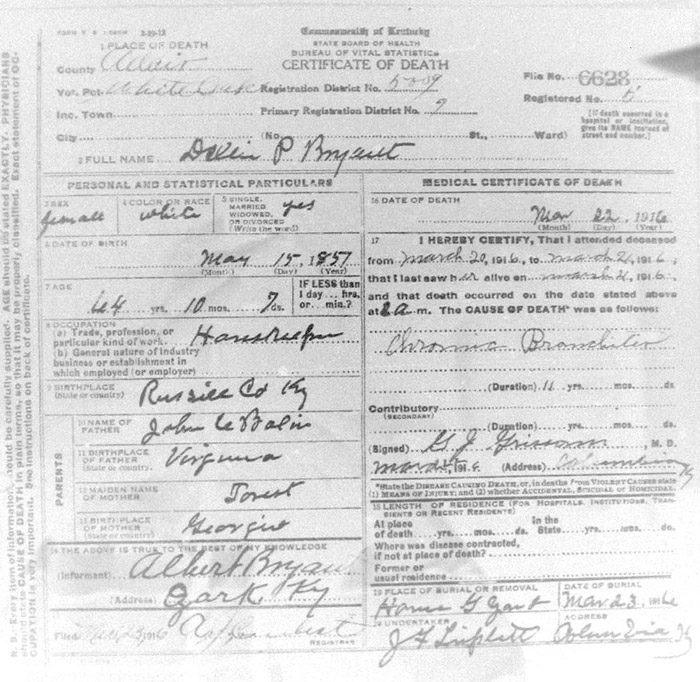 FORM V. S. 1
3-29-12
Commonwealth of Kentucky
STATE BOARD OF HEALTH
BUREAU OF VITAL STATISTICS
CERTIFICATE OF DEATH
1 PLACE OF DEATH
County Adair
Vot. Pct. White Oak
Inc. Town
City
Registration District No. 5009
Primary Registration District No. 9
(No. St., Ward)
File No. 6628
Registered No. 5
[If death occurred in a
hospital or institution,
give its NAME instead of
street and number.]
2 FULL NAME P Bryant
PERSONAL AND STATISTICAL PARTICULARS
3 SEX
female
4 COLOR OR RACE
white
5 SINGLE,
MARRIED
WIDOWED,
OR DIVORCED
(Write the word)
yes
6 DATE OF BIRTH
May 15, 1851
(Month) (Day) (Year)
7 AGE
64 yrs. 10 mos. 7 ds.
IF LESS than
1 day... hrs.
or... min.?
8 OCCUPATION
(a) Trade, profession, or
particular kind of work. Housekeeper
(b) General nature of industry
business or establishment in
which employed (or employer)
9 BIRTHPLACE
(State or country) Russell Co Ky
PARENTS
10 NAME OF
FATHER John
11 BIRTHPLACE
OF FATHER
(State or country) Virginia
12 MAIDEN NAME
OF MOTHER
13 BIRTHPLACE
OF MOTHER
(State or country) Georgia
14 THE ABOVE IS TRUE TO THE BEST OF MY KNOWLEDGE
(Informant) Albert Bryant
(Address) Ozark Ky
Filed 1916
REGISTRAR
MEDICAL CERTIFICATE OF DEATH
16 DATE OF DEATH
Mar 22, 1916
(Month) (Day) (Year)
17 I HEREBY CERTIFY, That I attended deceased
from March 20, 1916, to March 21, 1916,
that I last saw her alive on March 21, 1916,
and that death occurred on the date stated above
at a. m. The CAUSE OF DEATH* was as follows:
Chronic Bronchitis
(Duration) 11 yrs. mos. ds.
Contributory
(SECONDARY)
(Duration) yrs. mos. ds.
(Signed) G J Grissom, M. D.
1916 (Address)
*State the DISEASE CAUSING DEATH, or, in deaths from VIOLENT CAUSES state
(1) MEANS OF INJURY; and (2) whether ACCIDENTAL, SUICIDAL OR HOMICIDAL.
18 LENGTH OF RESIDENCE (FOR HOSPITALS, INSTITUTIONS, TRANSIENTS
OR RECENT RESIDENTS)
At place
of death yrs. mos. ds.
In the
State yrs. mos. ds.
Where was disease contracted,
if not at place of death?
Former or
usual residence
19 PLACE OF BURIAL OR REMOVAL
Home G Yard
DATE OF BURIAL
Mar 23, 1916
20 UNDERTAKER
J F Triplett
ADDRESS
Columbia Ky